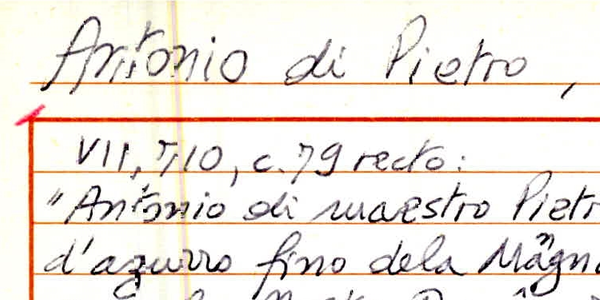 Antonio di Pietro,
VII, 7, 10, c. 79 recto:
"Antonio di maestro Pietr
d'azurro fino dela Magna